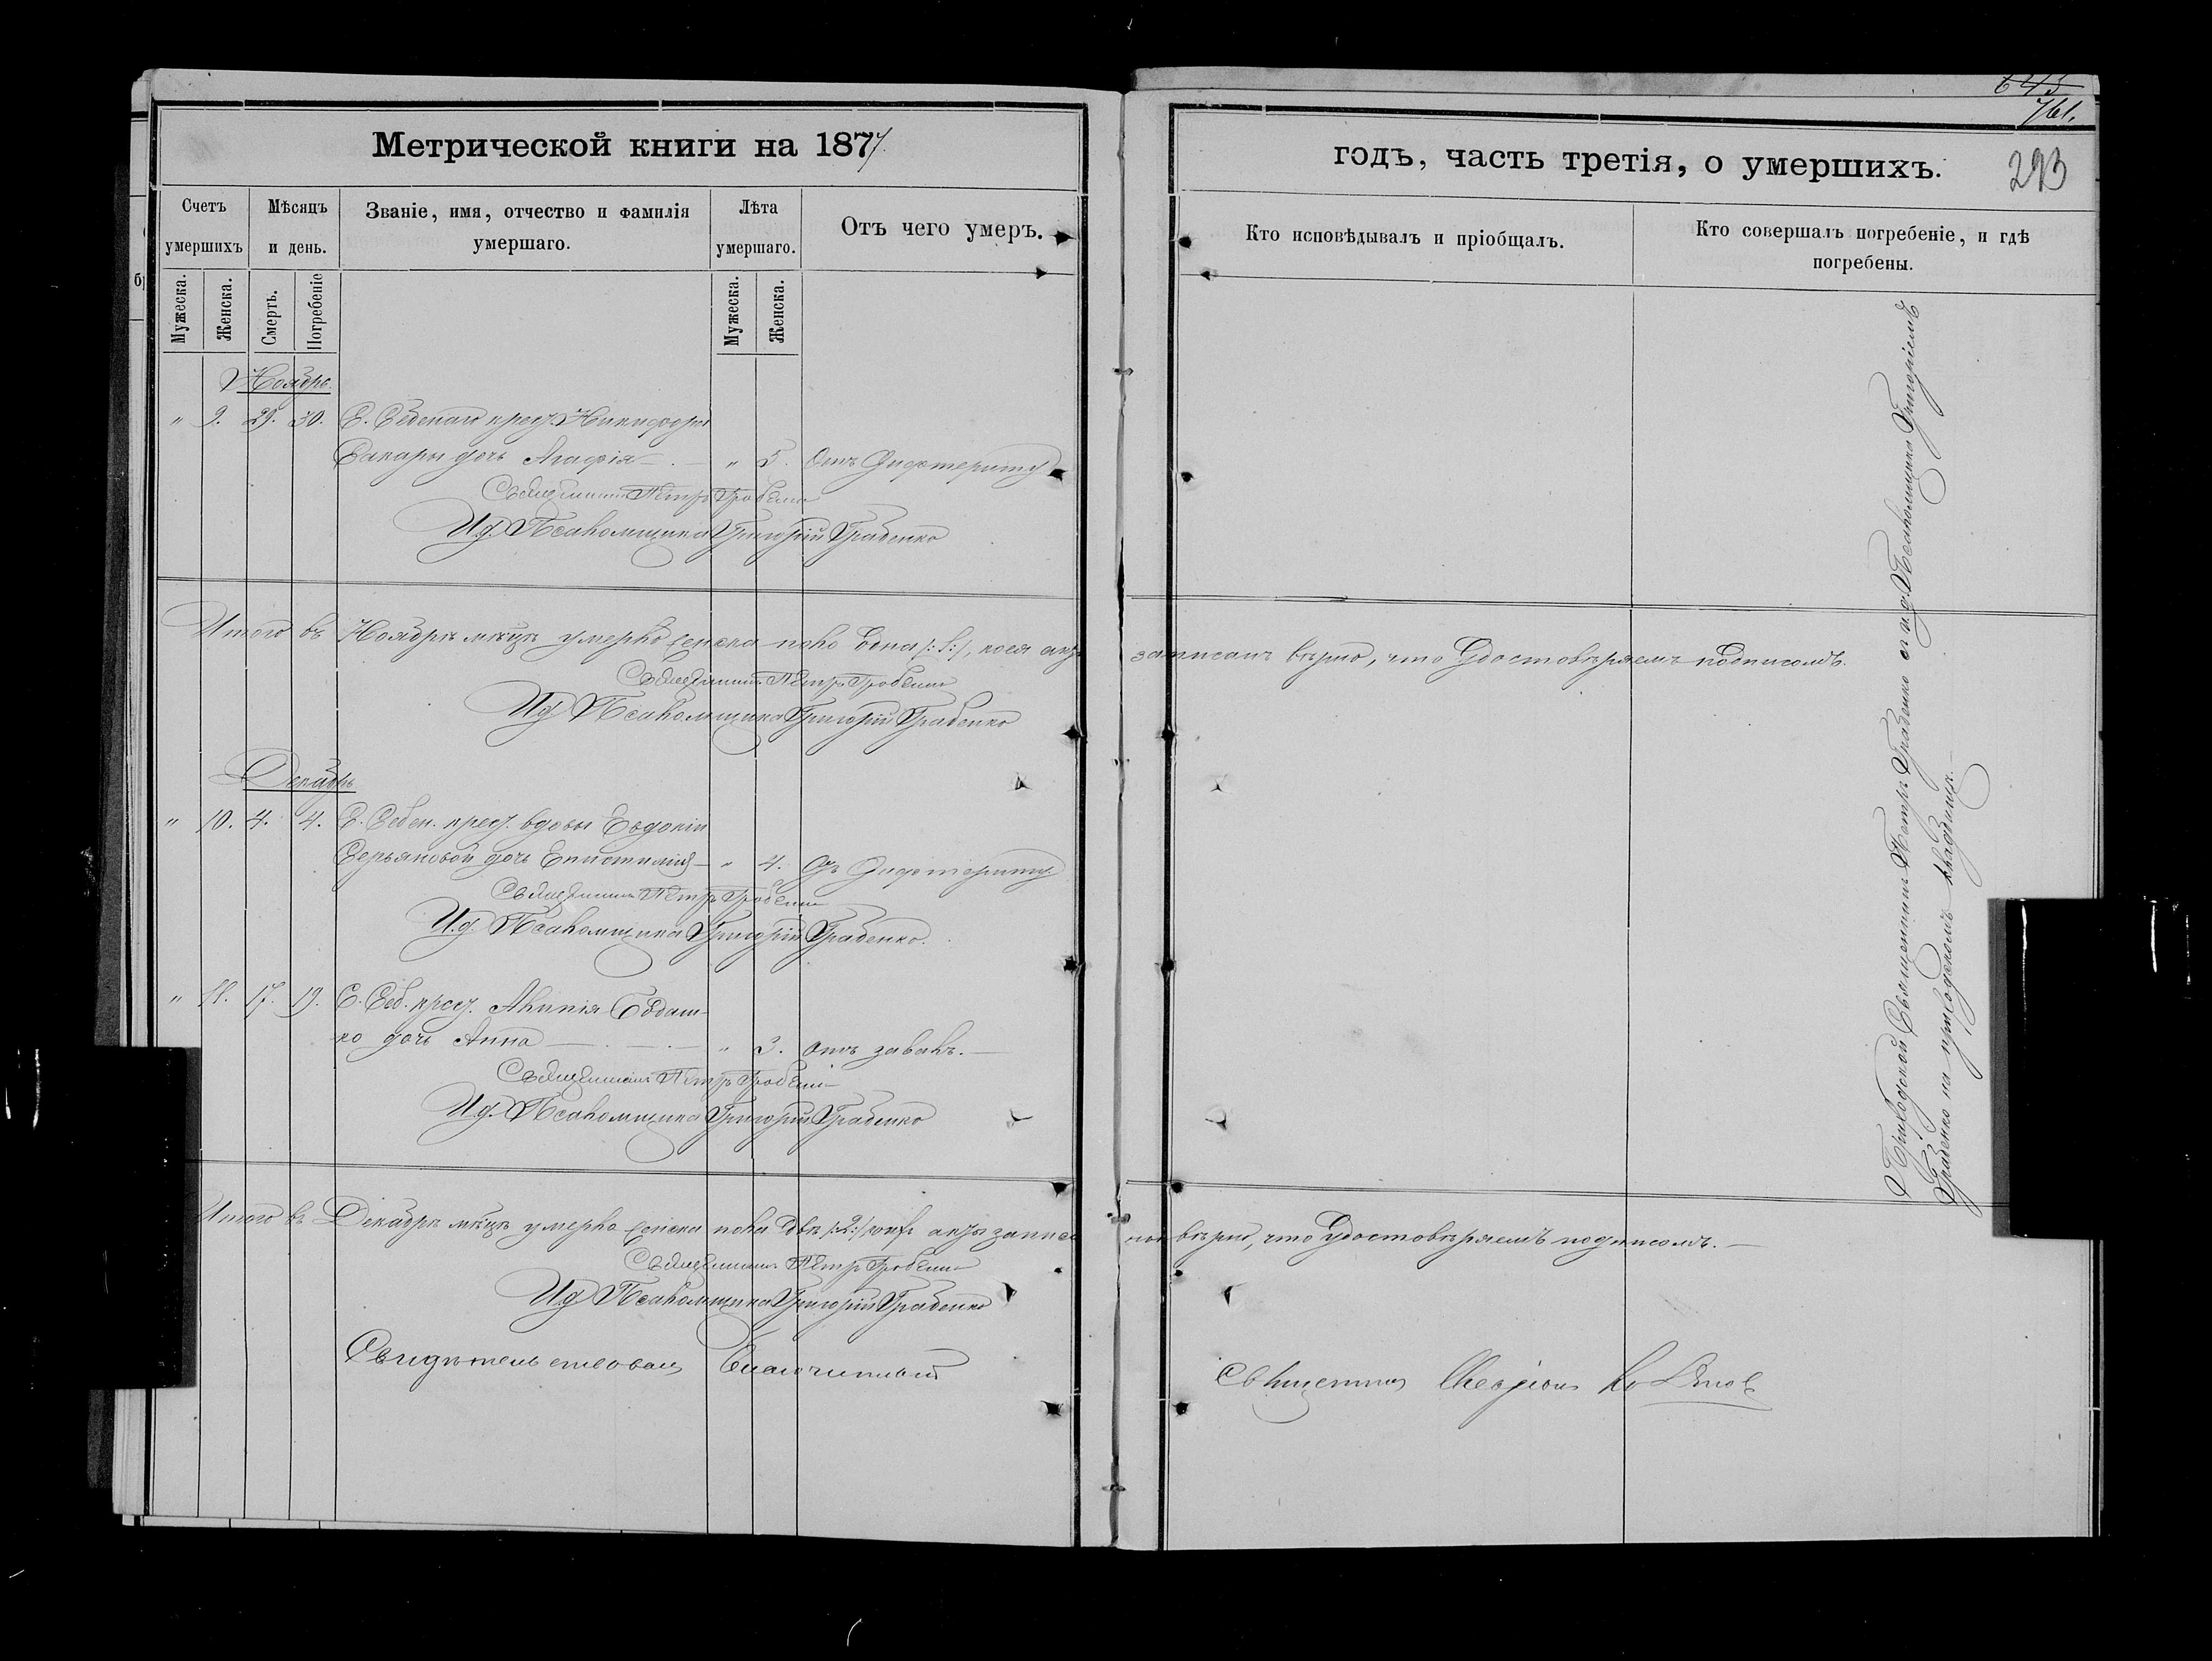 Метрической книги на 1877
годъ, часть третія, о умершихъ.
643
761.
293
Счетъ умершихъ
Мѣсяцъ и день.
Званіе, имя, отчество и фамилія умершаго.
Лѣта умершаго.
Отъ чего умеръ.
Кто исповѣдывалъ и пріобщалъ.
Кто совершалъ погребеніе, и гдѣ погребены.
Мужеска.
Женска.
Смерть.
Погребеніе
Мужеска.
Женска.
Ноябрь.
" 9. 29. 30. С. крес. Никифора
дочь Агафія " 5. Отъ Дифтериту
Священникъ Петръ Грабенко
И. д. Псаломщика Григорій Грабенко
Итого въ Ноябрѣ мѣцѣ умерло женска пола одна /:1:/, коея актъ записанъ вѣрно, что удостовѣряемъ подписомъ.
Священникъ Петръ Грабенко
И д Псаломщика Григорій Грабенко
Декабрь
" 10. 4. 4. С. крес. вдовы Евдокіи
дочь Епистимія " 4. Отъ Дифтериту
Священникъ Петръ Грабенко
И. д. Псаломщика Григорій Грабенко.
" 11. 17. 19. С. крес.
ко дочь Анна " 3. отъ завалъ.
Священникъ Петръ Грабенко
И д. Псаломщика Григорій Грабенко
Итого въ Декабрѣ мѣцѣ умерло женска пола двѣ /:2:/ акты записаны вѣрно, что удостовѣряемъ подписомъ.
Священникъ Петръ Грабенко
И д Псаломщика Григорій Грабенко
Свидѣтельствовалъ Благочинный
Священникъ
Приходской Священникъ Петръ Грабенко съ и. д. Псаломщика Григоріемъ
Грабенко на приходскомъ кладбищѣ.